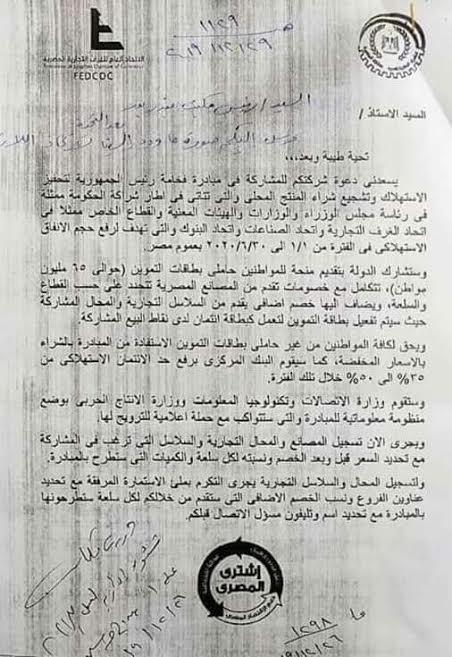 الاتحاد العام للغرف التجارية المصرية
Federation of Egyptian Chamber of Commerce
FEDCOC
١١٢٩
٢٠١٩/١٢/٢٩
السيد الاستاذ /
تحية طيبة وبعد،،،
يسعدني دعوة شركتكم للمشاركة في مبادرة فخامة رئيس الجمهورية لتحفيز
الاستهلاك وتشجيع شراء المنتج المحلى والتى تتاتى فى اطار شراكة الحكومة ممثلة
فى رئاسة مجلس الوزراء والوزارات والهيئات المعنية والقطاع الخاص ممثلا فى
اتحاد الغرف التجارية واتحاد الصناعات واتحاد البنوك والتى تهدف لرفع حجم الانفاق
الاستهلاكى فى الفترة من ١/١ الى ٢٠٢٠/٦/٣٠ بعموم مصر.
وستشارك الدولة بتقديم منحة للمواطنين حاملى بطاقات التموين (حوالى ٦٥ مليون
مواطن)، تتكامل مع خصومات تقدم من المصانع المصرية تتحدد على حسب القطاع
والسلعة، ويضاف اليها خصم اضافى يقدم من السلاسل التجارية والمحال المشاركة
حيث سيتم تفعيل بطاقة التموين لتعمل كبطاقة ائتمان لدى نقاط البيع المشاركة.
ويحق لكافة المواطنين من غير حاملى بطاقات التموين الاستفادة من المبادرة بالشراء
بالاسعار المخفضة، كما سيقوم البنك المركزى برفع حد الائتمان الاستهلاكى من
٣٥% الى ٥٠% خلال تلك الفترة.
وستقوم وزارة الاتصالات وتكنولوجيا المعلومات ووزارة الانتاج الحربى بوضع
منظومة معلوماتية للمبادرة والتى ستتواكب مع حملة اعلامية للترويج لها.
ويجرى الان تسجيل المصانع والمحال التجارية والسلاسل التى ترغب فى المشاركة
مع تحديد السعر قبل وبعد الخصم ونسبته لكل سلعة والكميات التى ستطرح بالمبادرة.
ولتسجيل المحال والسلاسل التجارية يجرى التكرم بملئ الاستمارة المرفقة مع تحديد
عناوين الفروع ونسب الخصم الاضافى التى ستقدم من خلالكم لكل سلعة ستطرحونها
بالمبادرة مع تحديد اسم وتليفون مسؤل الاتصال قبلكم.
إشترى
المصرى